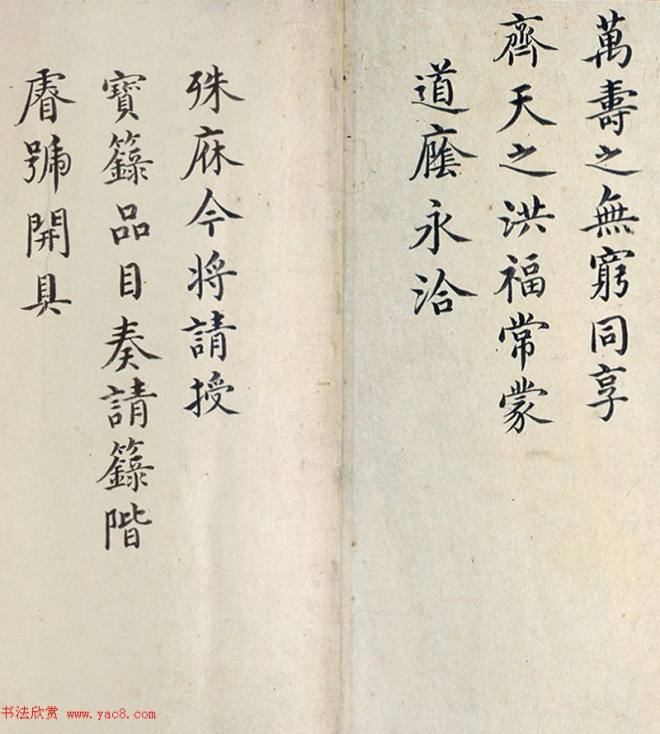 萬壽之無窮同享
齊天之洪福常蒙
道廕永洽
殊庥今将請授
寶籙品目奏請籙階
睿號開具
书法欣赏 www.yac8.com